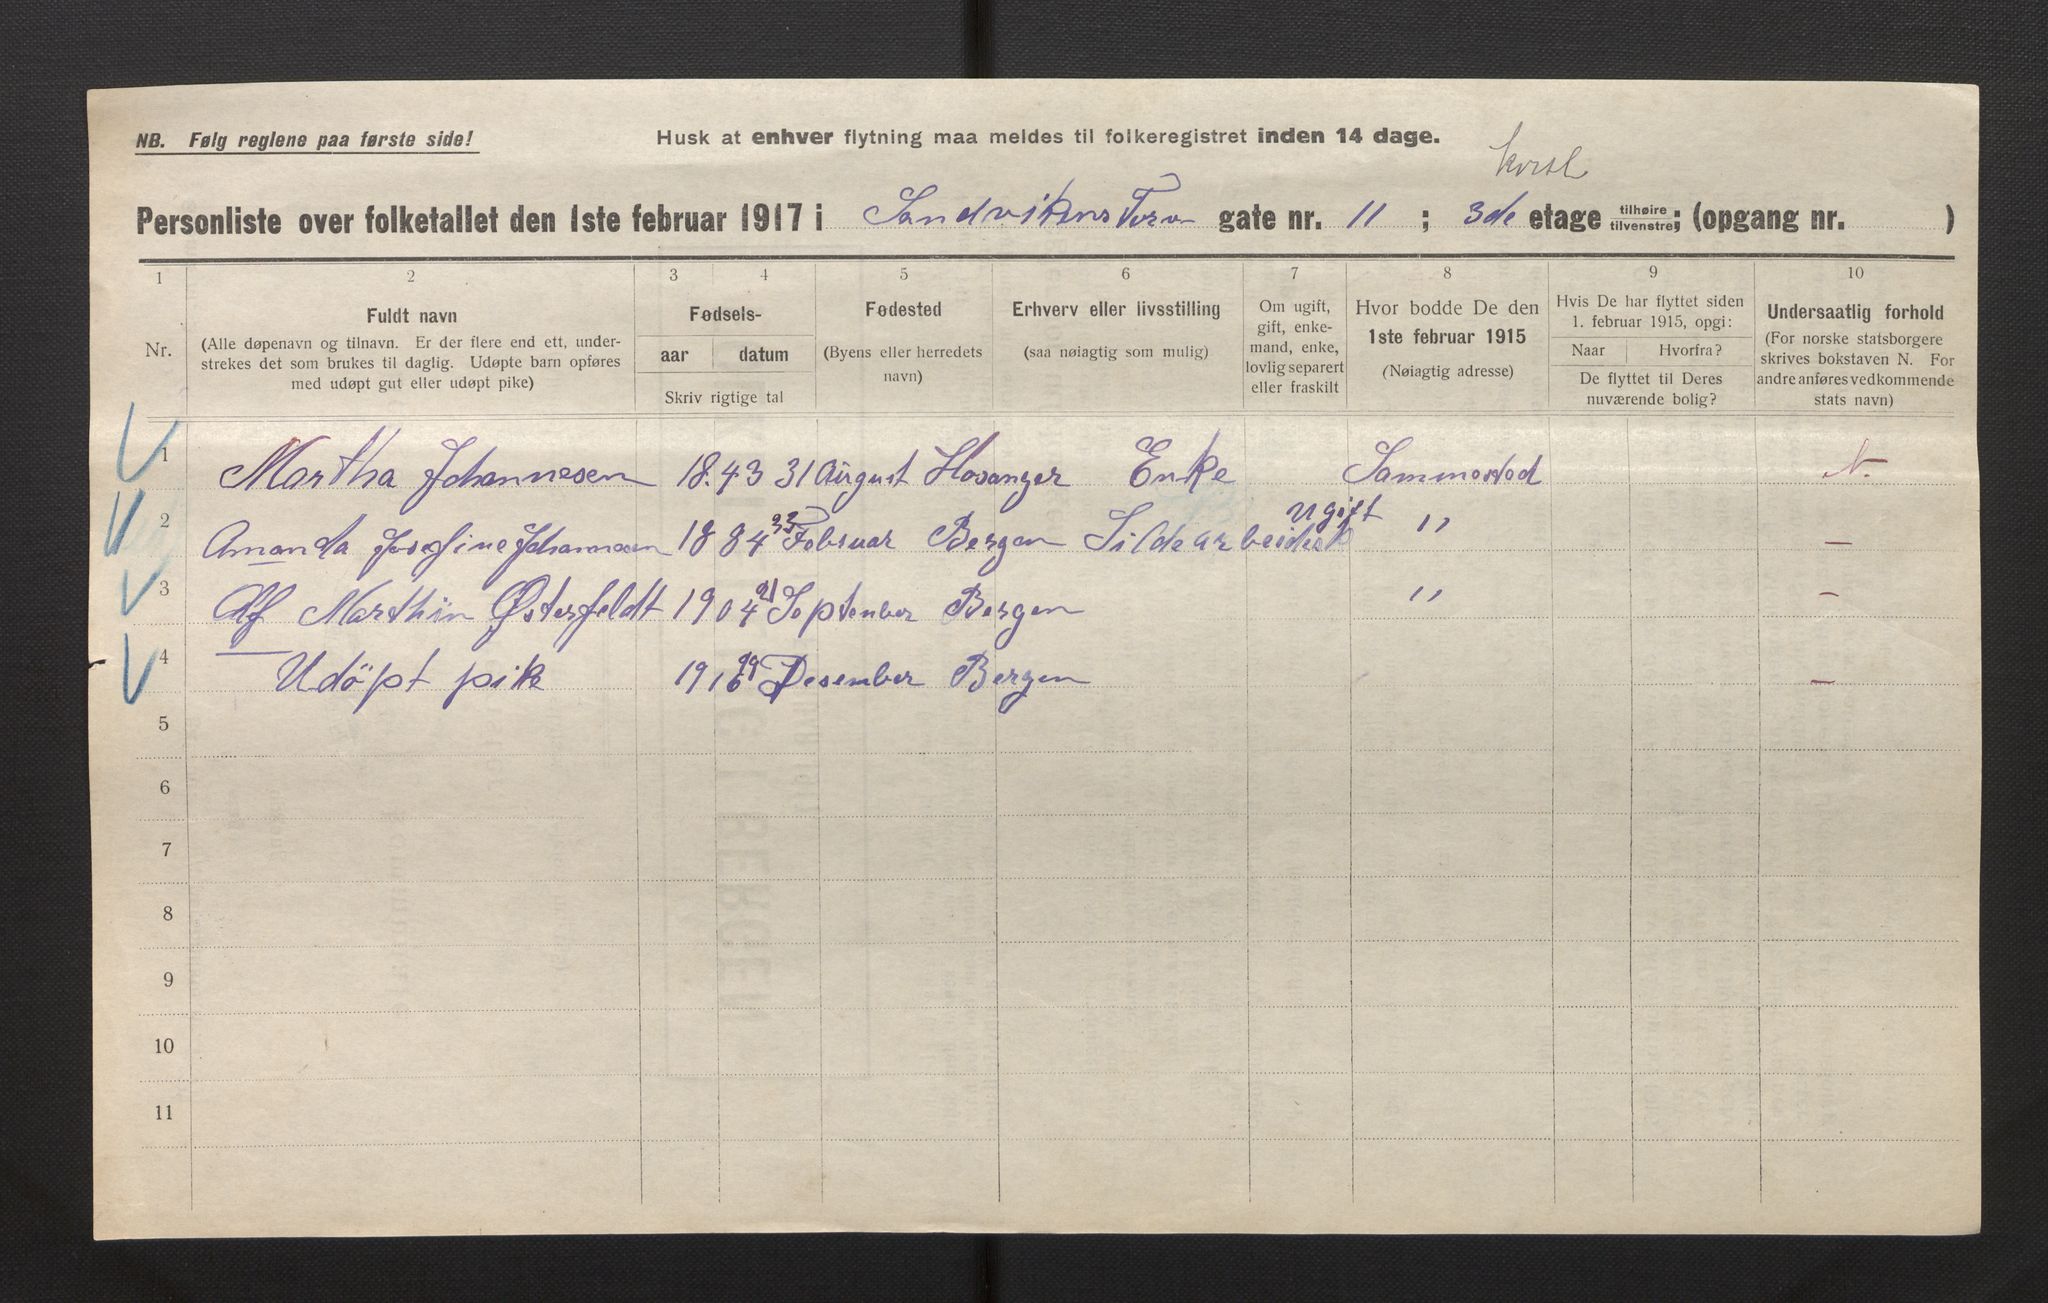 NB. Følg reglene paa første side!
Husk at enhver flytning maa meldes til folkeregistret inden 14 dage.
Personliste over folketallet den 1ste februar 1917 i Sandvikens Torv gate nr. 11 ; 3de etage tilhøire tilvenstre; (opgang nr. )
1 2 3 4 5 6 7 8 9 10
Nr.
Fuldt navn
(Alle døpenavn og tilnavn. Er der flere end ett, under-
strekes det som brukes til daglig. Udøpte barn opføres
med udøpt gut eller udøpt pike)
Fødsels-
aar datum
Skriv rigtige tal
Fødested
(Byens eller herredets
navn)
Erhverv eller livsstilling
(saa nøiagtig som mulig)
Om ugift,
gift, enke-
mand, enke,
lovlig separert
eller fraskilt
Hvor bodde De den
1ste februar 1915
(Nøiagtig adresse)
Hvis De har flyttet siden
1. februar 1915, opgi:
Naar Hvorfra?
De flyttet til Deres
nuværende bolig?
Undersaatlig forhold
(For norske statsborgere
skrives bokstaven N. For
andre anføres vedkommende
stats navn)
1 Martha Johannesen 18.43 31 August Hosanger Enke Sammested N.
2 Amanda Josefine Johannesen 1884 Februar Bergen Sildearbeidesk ugift " —
3 Alf Marthin Østerfeldt 1904 21 September Bergen " —
4 Udöpt pike 1916 29 Desember Bergen —
5
6
7
8
9
10
11